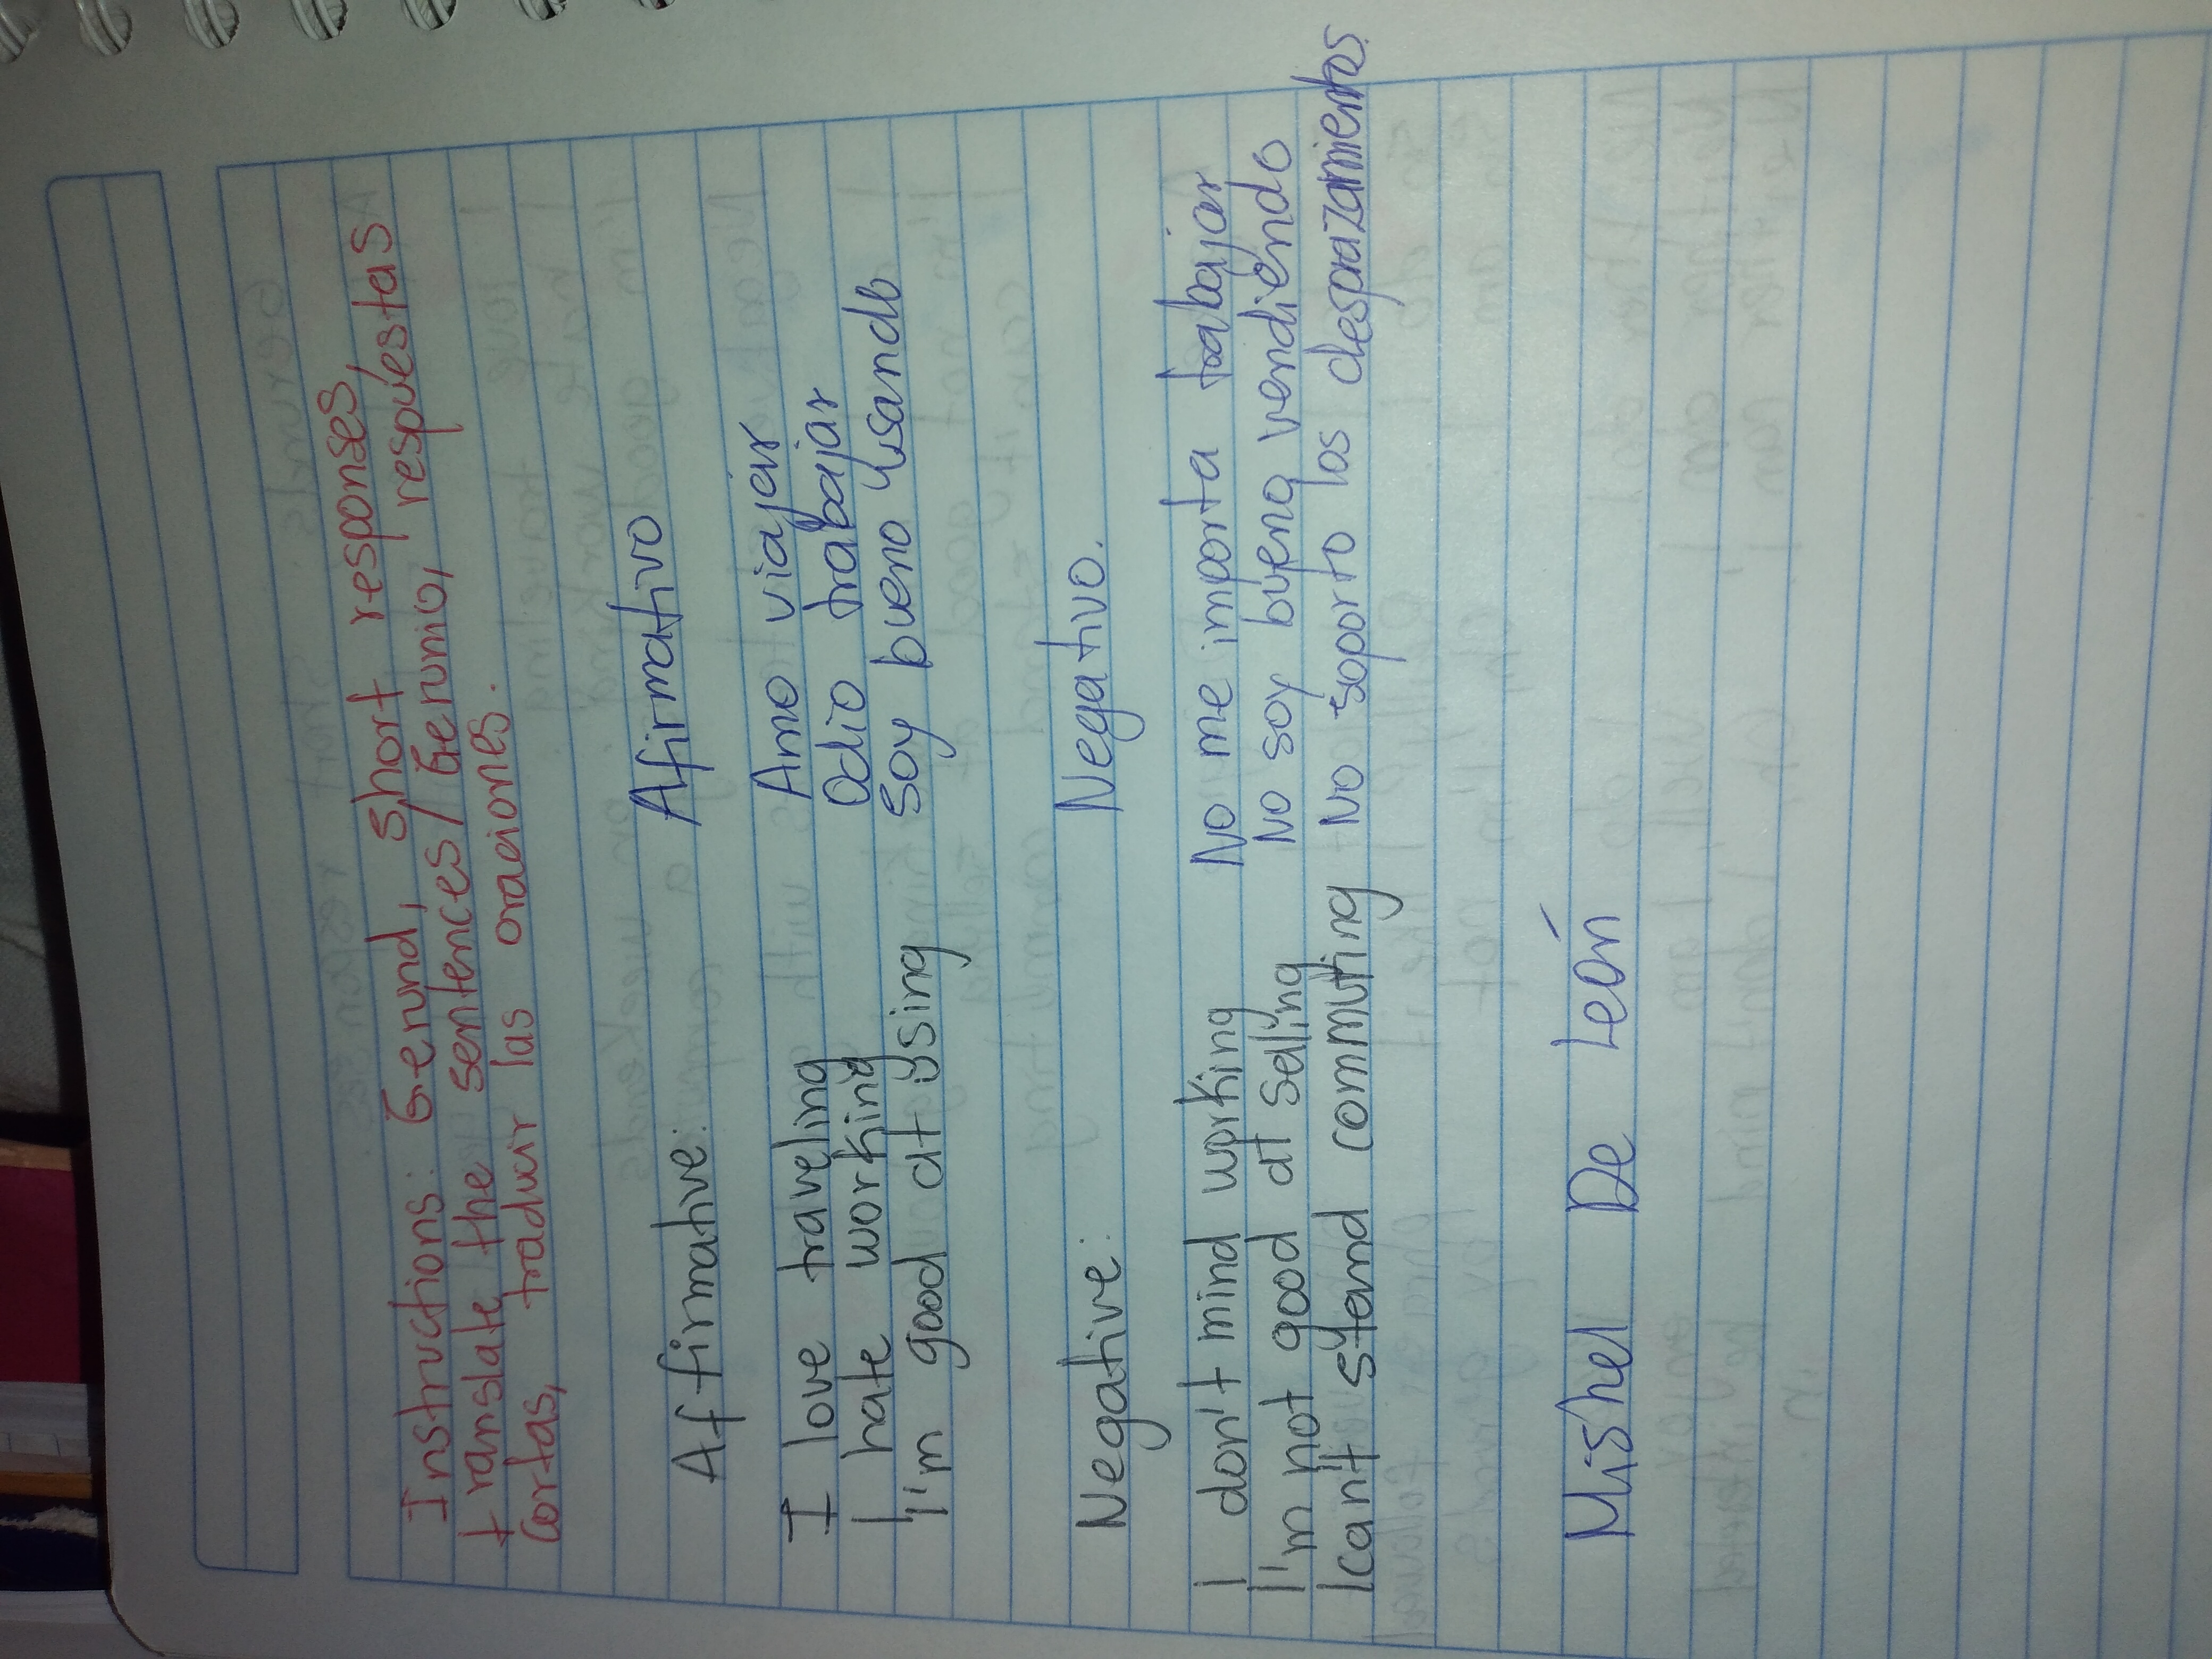 Instructions: Gerund, short responses,
translate the sentences/Gerunio, respuestas
cortas, traducir las oraciones.
Affirmative: Afirmativo
I love traveling Amo viajar
I hate working Odio trabajar
I'm good at using Soy bueno usando
Negative: Negativo.
I don't mind working No me importa trabajar
I'm not good at selling No soy bueno vendiendo
I can't stand commuting No soporto los desprazamientos.
Mishel De León